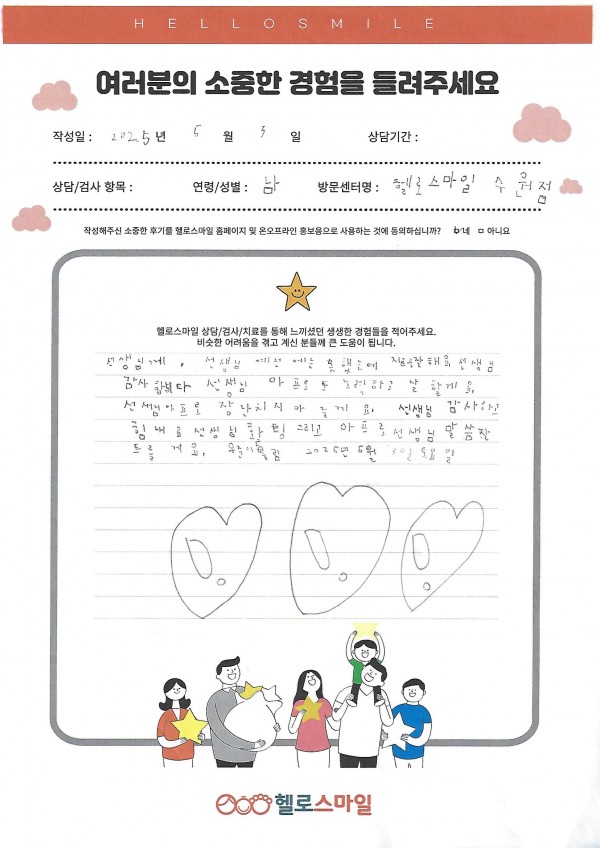 HELLOSMILE
여러분의 소중한 경험을 들려주세요
작성일 : 2025년 5월 3일 상담기간 :
상담/검사 항목 : 연령/성별 : 남 방문센터명 : 헬로스마일 수원점
작성해주신 소중한 후기를 헬로스마일 홈페이지 및 온오프라인 홍보용으로 사용하는 것에 동의하십니까? 네 아니요
헬로스마일 상담/검사/치료를 통해 느끼셨던 생생한 경험들을 적어주세요.
비슷한 어려움을 겪고 계신 분들께 큰 도움이 됩니다.
선생님게, 선생님 예전에는 못했는데 지금은잘해요선생님
감사합니다 선생님 아프로도 노력하고 잘 할게요.
선생님아프로 장난치지 게요. 선생님 감사하고
힘내요 선생님 화팅 그리고 아프로 선생님 말씀잘
드를게요, 올림 2025년 5월 3일 토요일
헬로스마일